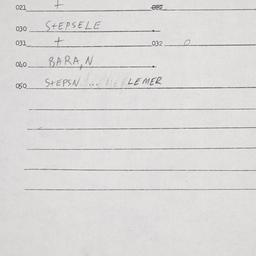 021 t
030 StEPSELE
031 t 032 0
040 BARA,N
050 StEPSN LEMER